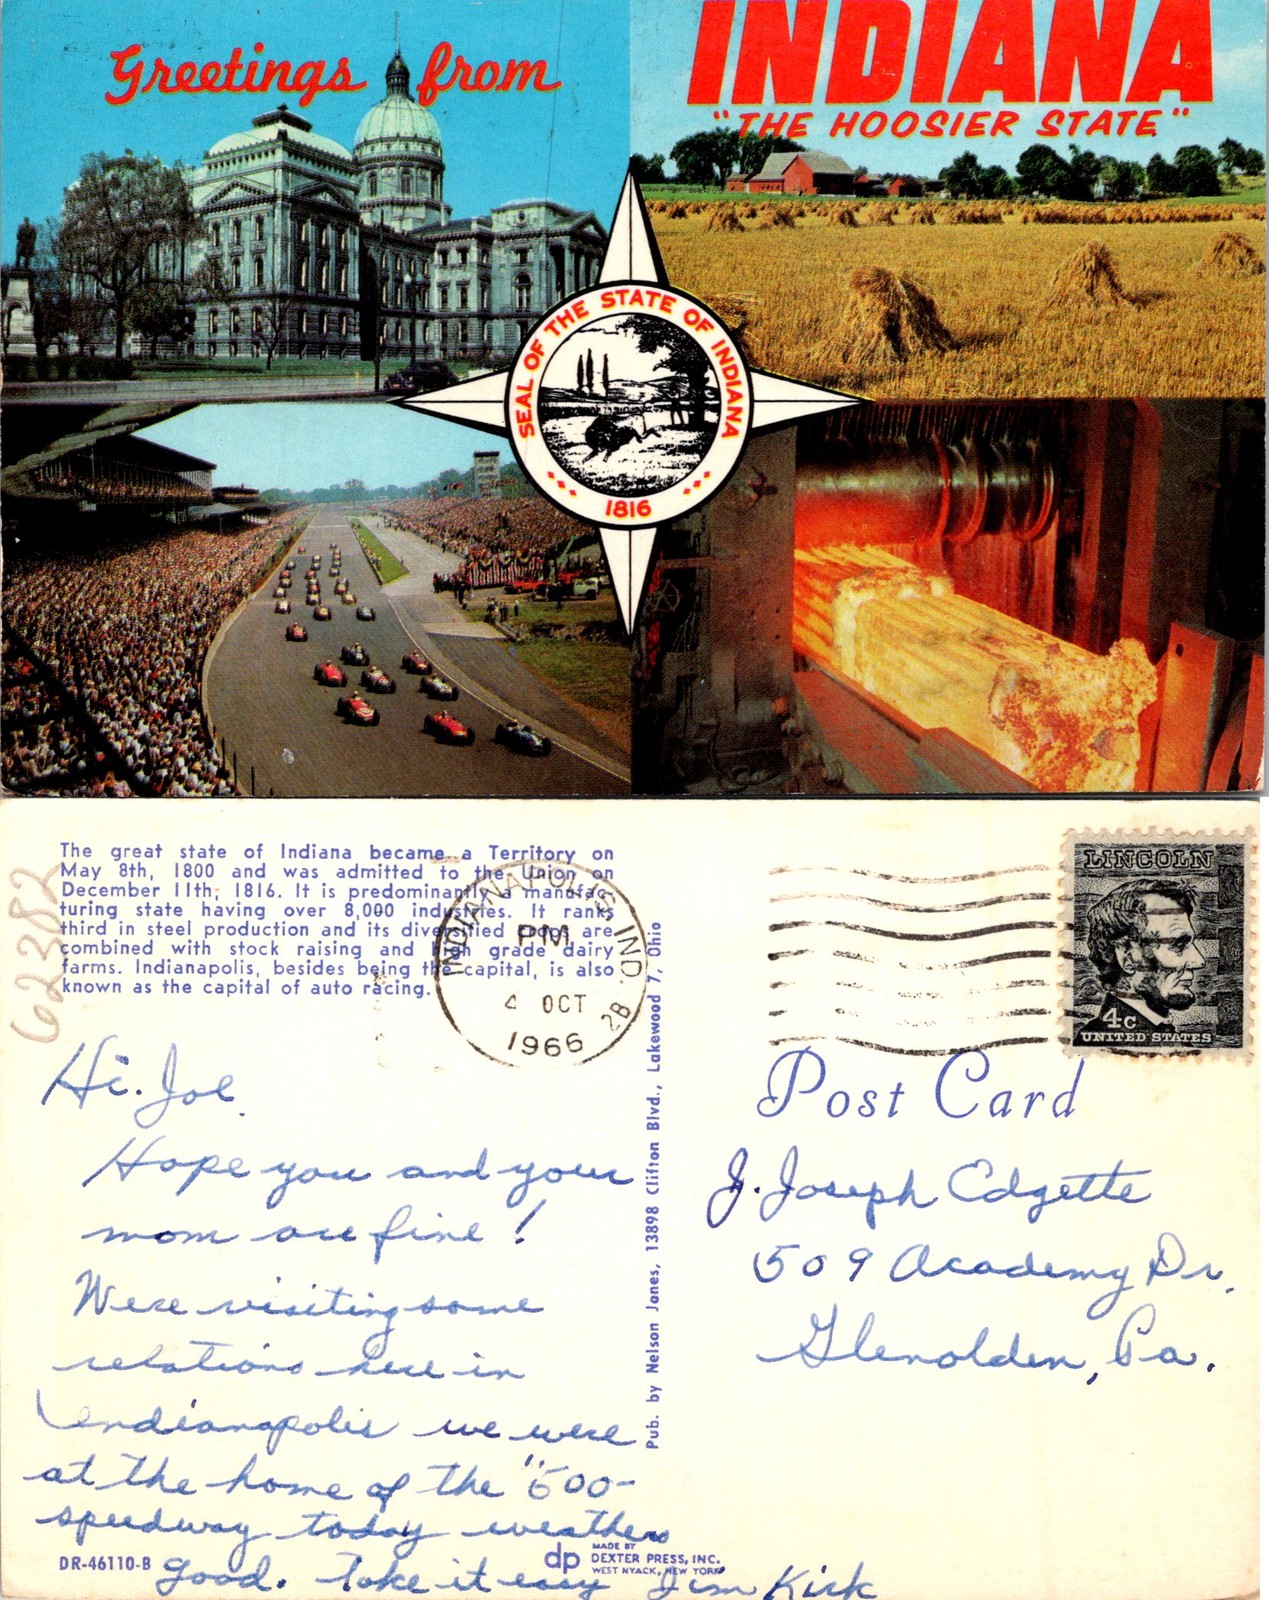 Greetings from
INDIANA
"THE HOOSIER STATE"
SEAL OF THE STATE OF INDIANA
1816
The great state of Indiana became a Territory on
May 8th, 1800 and was admitted to the Union on
December 11th, 1816. It is predominantly a manufac-
turing state having over 8,000 industries. It ranks
third in steel production and its diversified crops are
combined with stock raising and high grade dairy
farms. Indianapolis, besides being the capital, is also
known as the capital of auto racing.
62382
INDIANAPOLIS, IND.
PM
4 OCT
1966
2B
LINCOLN
4c
UNITED STATES
Post Card
Hi. Joe.
Hope you and your
mom are fine!
Were visiting some
relations here in
Indianapolis we were
at the home of the "500-
speedway today weathers
good. Take it easy Jim Kirk
J. Joseph Edgette
509 Academy Dr.
Glenolden, Pa.
Pub. by Nelson Jones, 13898 Clifton Blvd., Lakewood 7, Ohio
DR-46110-B
dp
MADE BY
DEXTER PRESS, INC.
WEST NYACK, NEW YORK